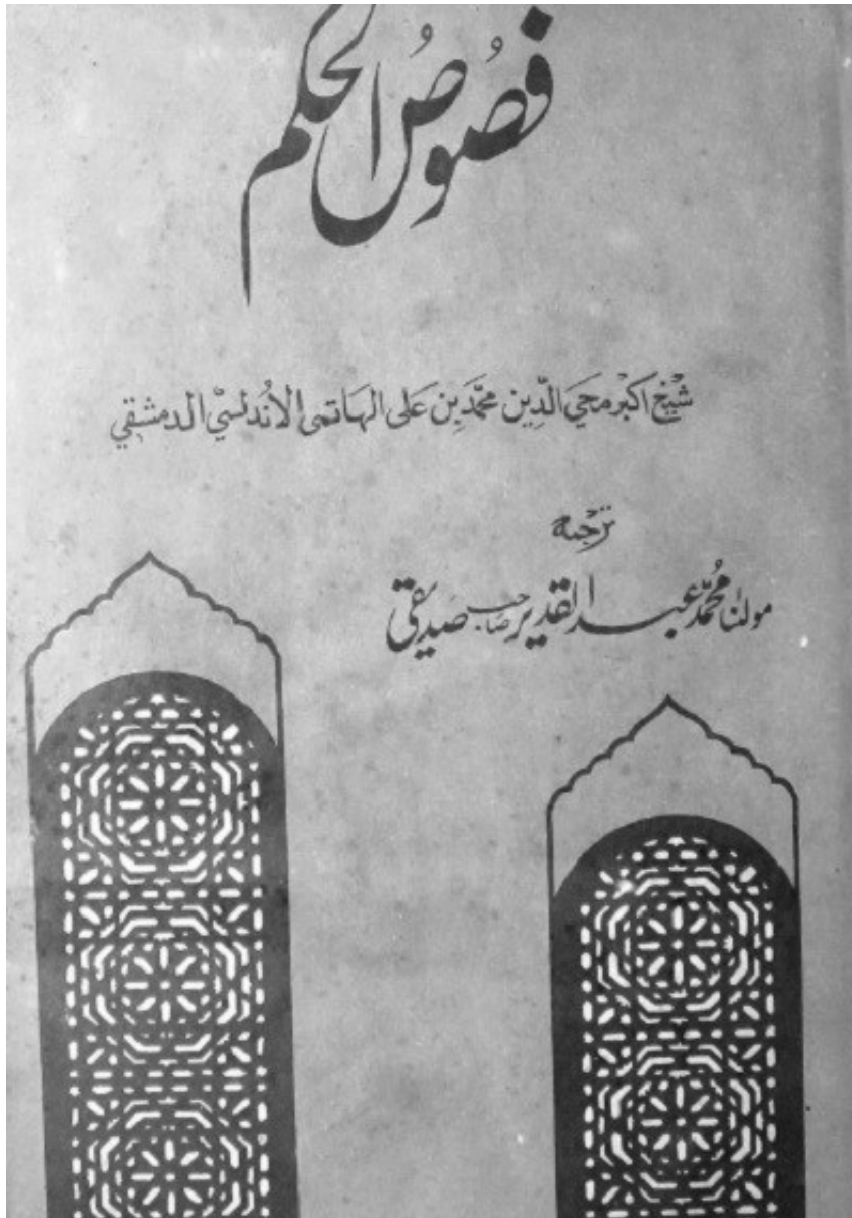 فصُوصُ الحکم
شیْخ اکبرْ محی الدّین محمّد بِن عَلی الہاتمی الاُندلسیّ الدمشقی
ترْجمہ
مولٰنا محُمّد عبد القدیر صاحب صدیقی